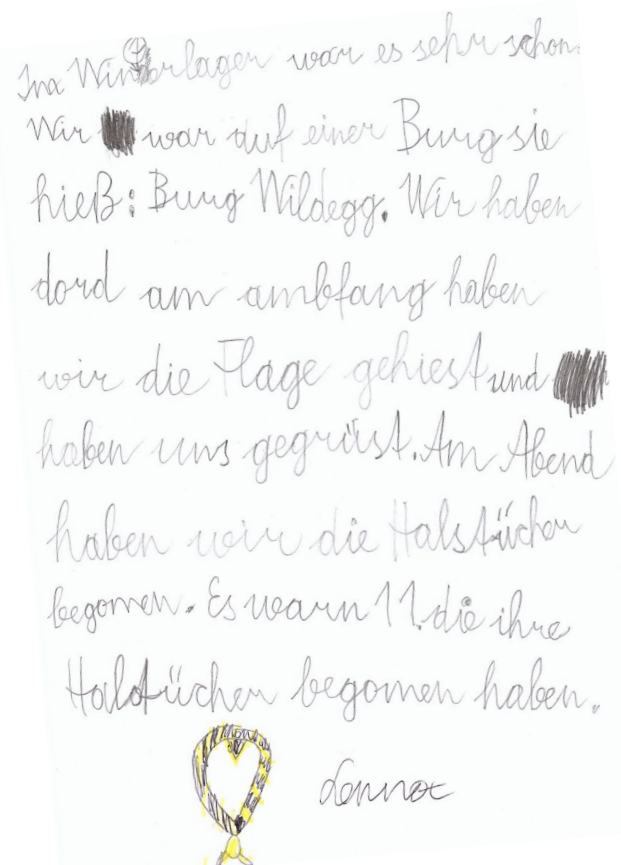 Im Winterlager war es sehr schon.
Wir war auf einer Burg sie
hieß: Burg Wildegg. Wir haben
dord am ambfang haben
wir die Flage gehiest und
haben uns gegrüst. Am Abend
haben wir die Halstücher
begomen. Es warn 11. die ihre
Halstücher begomen haben.
Lennox